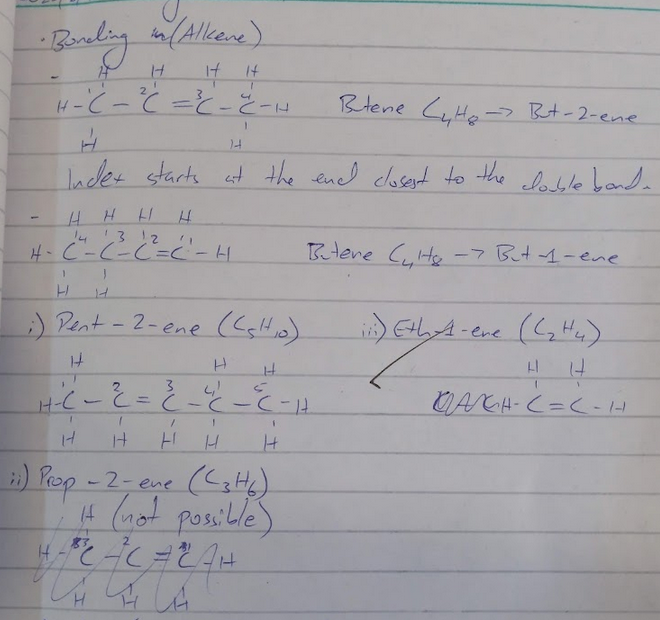 · Bonding in (Alkene)
- H H H H
H - C¹ - ²C = ³C - ⁴C - H Butene C₄H₈ → But-2-ene
H H
Index starts at the end closest to the double bond.
- H H H H
H - C⁴ - C³ - C² = C¹ - H Butene C₄H₈ → But-1-ene
H H
i) Pent-2-ene (C₅H₁₀) iii) Eth-1-ene (C₂H₄)
H H H H H
H - ¹C - ²C = ³C - ⁴C - ⁵C - H H - C = C - H
H H H H H
ii) Prop-2-ene (C₃H₆)
H (not possible)
H - ³C - ²C = ¹C - H
H H H